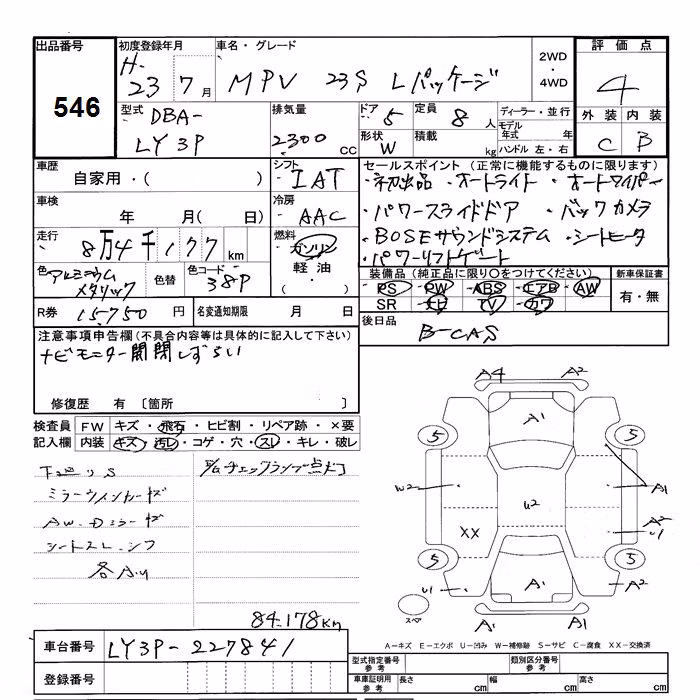 出品番号 初度登録年月 車名・グレード 2WD・4WD 評価点
546 H-23年7月 MPV 23S Lパッケージ 4
型式 DBA-LY3P 排気量 2300cc ドア 5 定員 8人 ディーラー・並行 外装 内装
形状 W 積載 kg モデル年式 年 ハンドル 左・右 C B
車歴 自家用・( ) シフト IAT セールスポイント (正常に機能するものに限ります)
・初出品 ・オートライト ・オートワイパー
車検 年 月( 日) 冷房 AAC ・パワースライドドア ・バックカメラ
走行 8万4千177km 燃料 ガソリン 軽油・ ・BOSEサウンドシステム ・シートヒータ
・パワーリフトゲート
色 アルミニウムメタリック 色替 色コード 38P 装備品 (純正品に限り○をつけてください) 新車保証書
PS・PW・ABS・エアB・AW 有・無
R券 15750円 名変通知期限 月 日 SR ナビ TV カワ
注意事項申告欄 (不具合内容等は具体的に記入して下さい) 後日品 B-CAS
ナビモニター開閉しずらい
修復歴 有 〔箇所 〕
検査員記入欄 FW キズ・飛石・ヒビ割・リペア跡・×要
内装 キズ・汚レ・コゲ・穴・スレ・キレ・破レ
ミラーウインカーキズ
AW・Dミラーキズ
各AU
84.178Km
A4 A2
A1
5 5
W2 U2 A1
XX A2 U1
5 5
U1 A1 A2
スペア A1 A1
A-キズ E-エクボ U-凹み W-補修跡 S-サビ C-腐食 XX-交換済
車台番号 LY3P-227841
登録番号
型式指定番号 参考 類別区分番号 参考
車庫証明用 参考 長さ cm 幅 cm 高さ cm